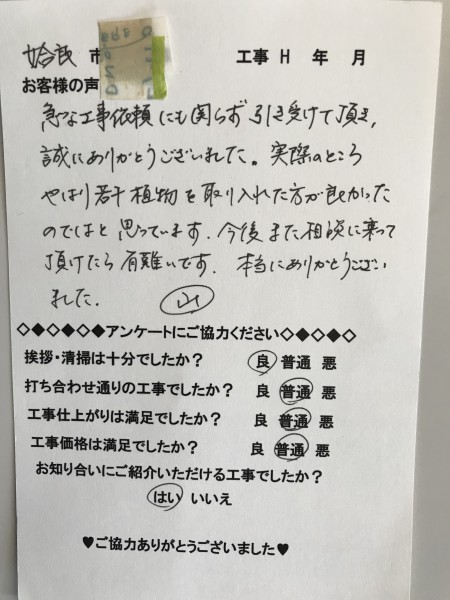 姶良 市 工事 H 年 月
お客様の声
急な工事依頼にも関らず引き受けて頂き、
誠にありがとうございました。実際のところ
やはり若干植物を取り入れた方が良かった
のではと思っています。今後また相談に乗って
頂けたら有難いです。本当にありがとうござい
ました。 山
◇◆◇◆◇◆アンケートにご協力ください◇◆◇◆◇
挨拶・清掃は十分でしたか? 良 普通 悪
打ち合わせ通りの工事でしたか? 良 普通 悪
工事仕上がりは満足でしたか? 良 普通 悪
工事価格は満足でしたか? 良 普通 悪
お知り合いにご紹介いただける工事でしたか?
はい いいえ
♥ご協力ありがとうございました♥